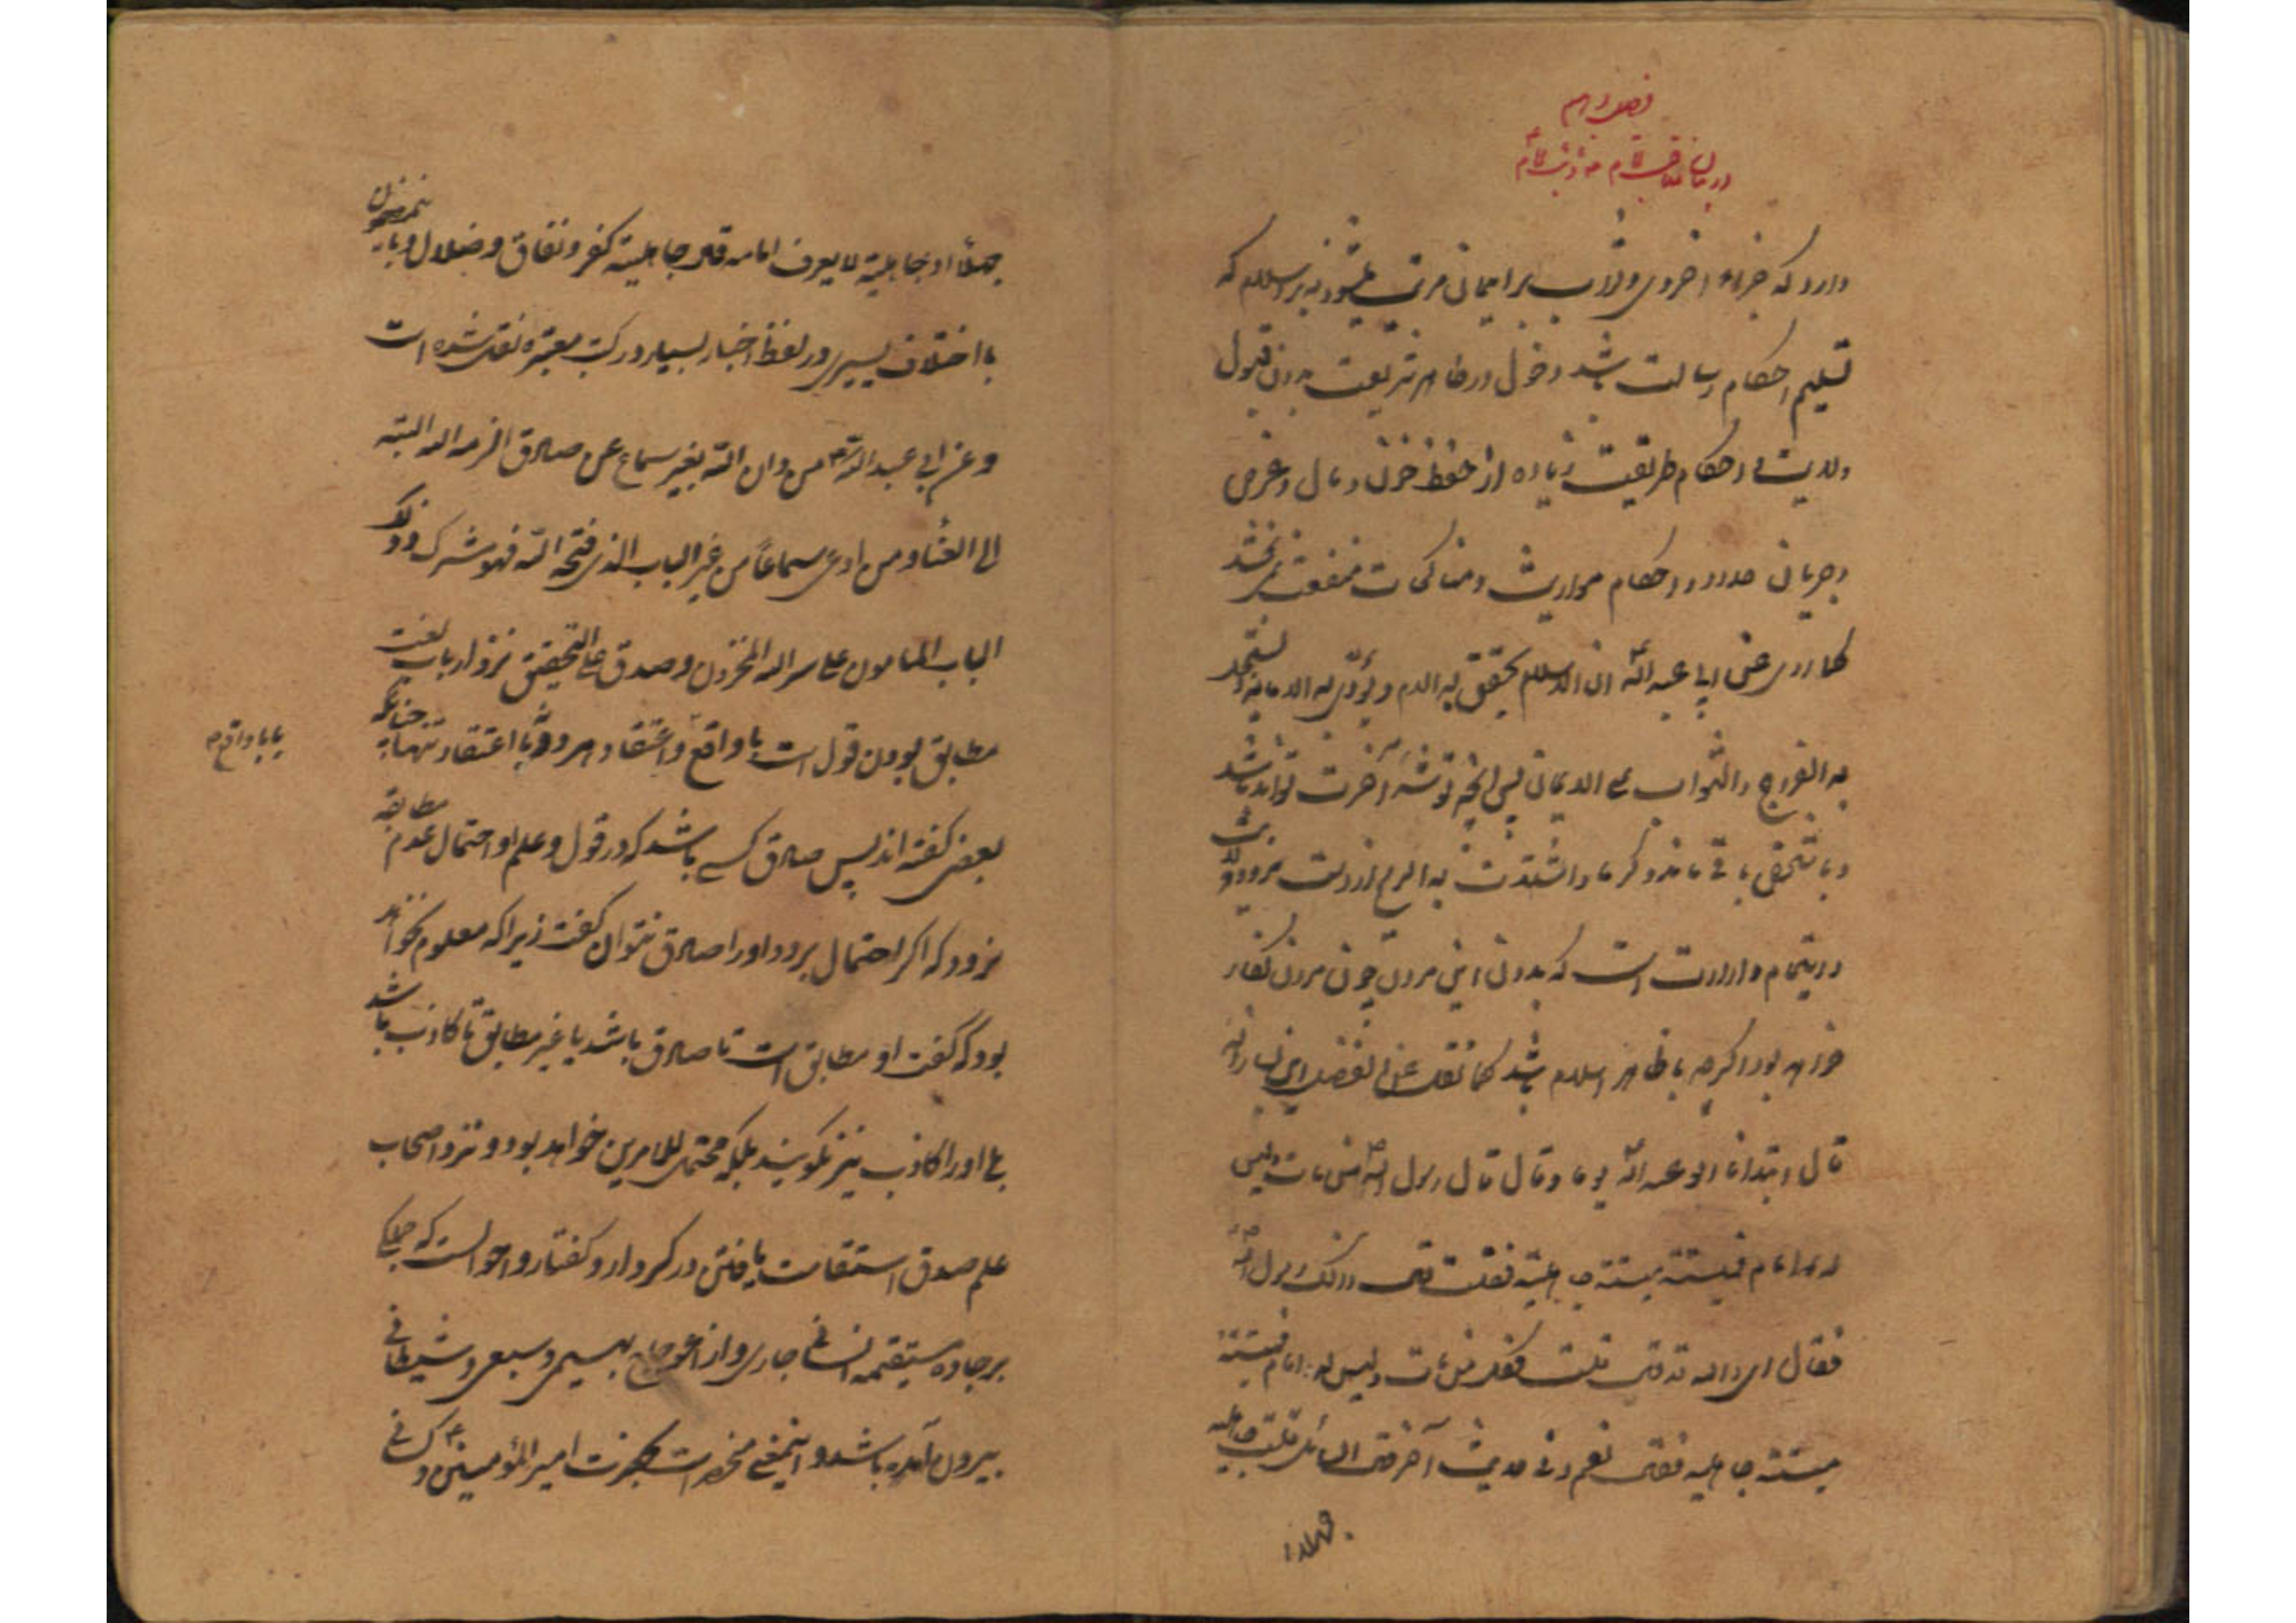 فصل دهم
دارد که جزاء اخروی و ثواب بر ایمان مرتب میشود نه بر اسلام که
تسلیم احکام رسالت باشد دخول در ظاهر شریعت بدون قبول
ولایت و احکام طریقت زیاده از حفظ خون و مال و عرض
و جریان حدود و احکام مواریث و مناکحات منفعت نبخشد
کما روی عن ابی عبد الله ع ان الاسلام یحقن به الدم و یؤدی به الامانة و تستحل
به الفروج و الثواب علی الایمان پس آنچه توشه آخرت تواند شد
و با شخص باقی ماند
که بدون این مردن چون مردن کفار
خواهد بود اگرچه با ظاهر اسلام باشد کما نقل عن فضیل ابن یسار انه
قال ابتدانا ابو عبد الله ع یوما و قال قال رسول الله ص من مات و لیس
له امام فمیتته میتة جاهلیة فقلت قال ذلک رسول الله ص
فقال ای و الله قد قال قلت فکل من مات و لیس له امام فمیتته
میتة جاهلیة فقال نعم و فی حدیث آخر قال السائل قلت جاهلیة
جهلاء
جهلاً او جاهلیة لا یعرف امامه قال جاهلیة کفر و نفاق و ضلال و باین مضمون
با اختلاف یسیری در لفظ اخبار بسیار در کتب معتبره نقل شده است
و عن ابی عبد الله ع من دان الله بغیر سماع عن صادق الزمه الله البتة
الی العناء و من ادعی سماعاً من غیر الباب الذی فتحه الله فهو مشرک و ذلک
الباب المامون علی سر الله المخزون و صدق علی التحقیق نزد ارباب لغت
مطابق بودن قول است با واقع و اعتقاد هر دو یا با اعتقاد تنها چنانکه
یا با واقع
بعضی گفته اند پس صادق کسی باشد که در قول و علم او احتمال عدم مطابقه
نرود که اگر احتمال برود او را صادق نتوان گفت زیرا که معلوم نخواهد
بود که گفت او مطابق است تا صادق باشد یا غیر مطابق تا کاذب باشد
بلی او را کاذب نیز نگویند بلکه محتمل للامرین خواهد بود و نزد اصحاب
علم صدق استقامت یافتن در کردار و گفتار و احوالست که
بر جاده مستقیمه انسانی جاری و از اعوجاج بهیمی و سبعی و شیطانی
بیرون آمده باشد و اینمعنی منحصر است بحضرت امیر المؤمنین ع و کسانی